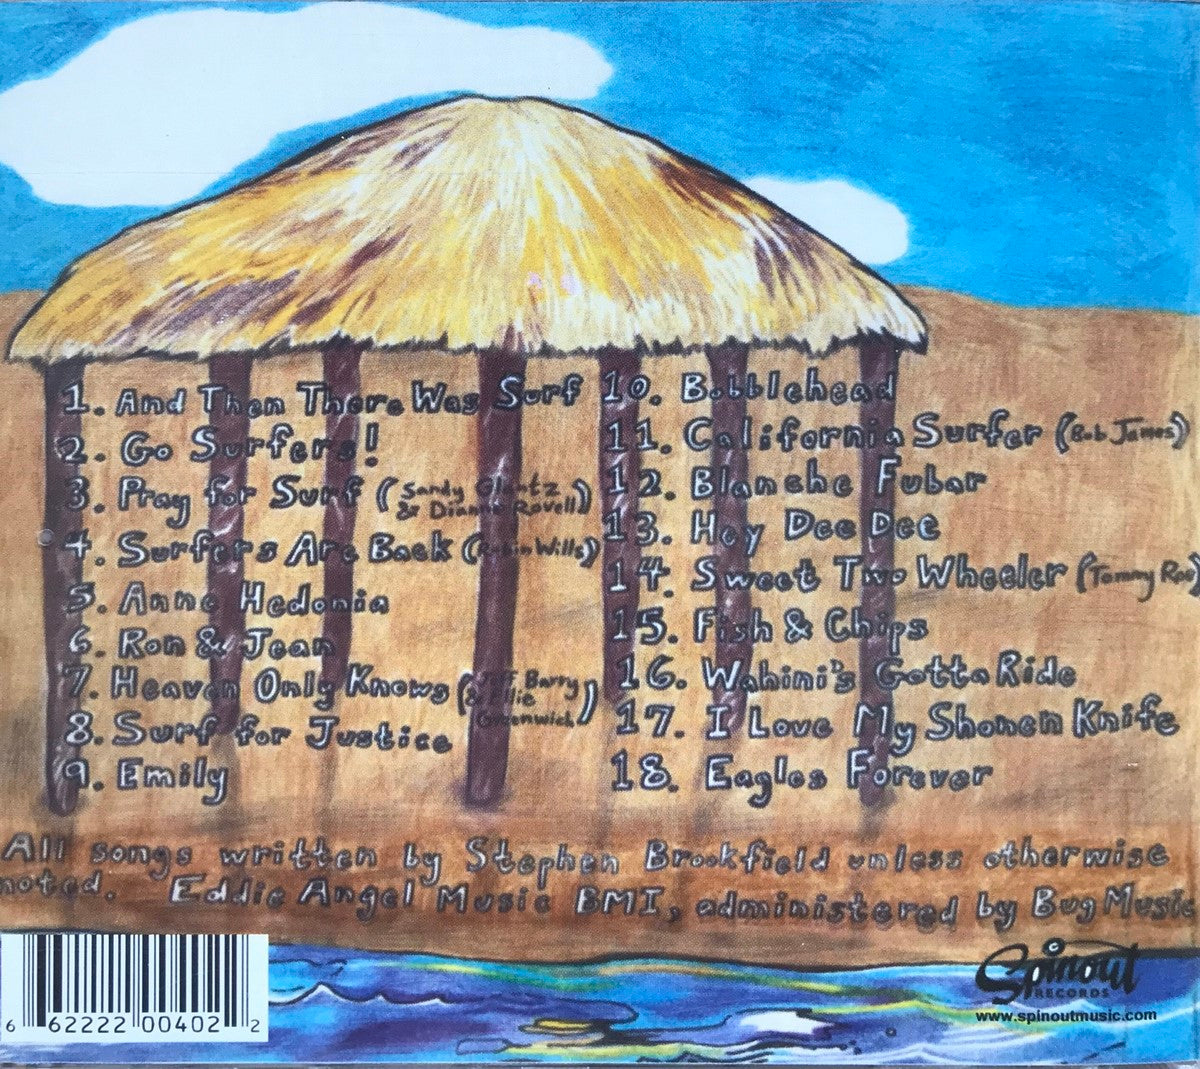 1. And Then There Was Surf
2. Go Surfers!
3. Pray for Surf (Sandy Glantz
& Dianne Rovell)
4. Surfers Are Back (Robin Wills)
5. Anne Hedonia
6. Ron & Jean
7. Heaven Only Knows (Jeff Barry
& Ellie
Greenwich)
8. Surf for Justice
9. Emily
10. Bobblehead
11. California Surfer (Bob James)
12. Blanche Fubar
13. Hey Dee Dee
14. Sweet Two Wheeler (Tommy Roe)
15. Fish & Chips
16. Wahini's Gotta Ride
17. I Love My Shonen Knife
18. Eagles Forever
All songs written by Stephen Brookfield unless otherwise
noted. Eddie Angel Music BMI, administered by Bug Music
6 62222 00402 2
Spinout
RECORDS
www.spinoutmusic.com